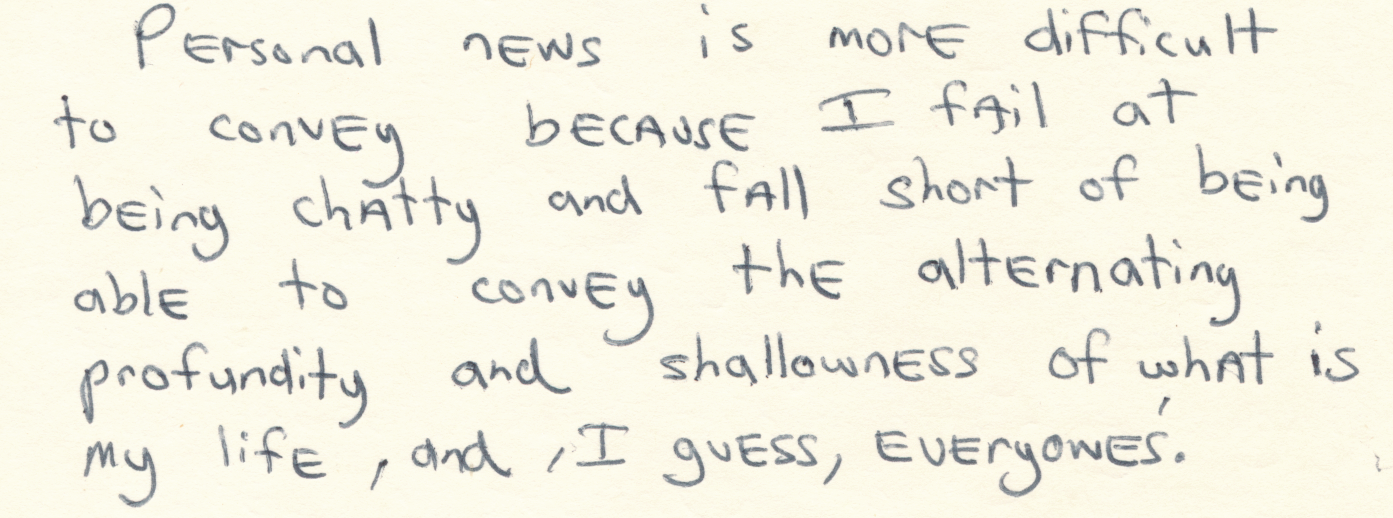 Personal news is more difficult
to convey because I fail at
being chatty and fall short of being
able to convey the alternating
profundity and shallowness of what is
my life, and, I guess, everyone's.